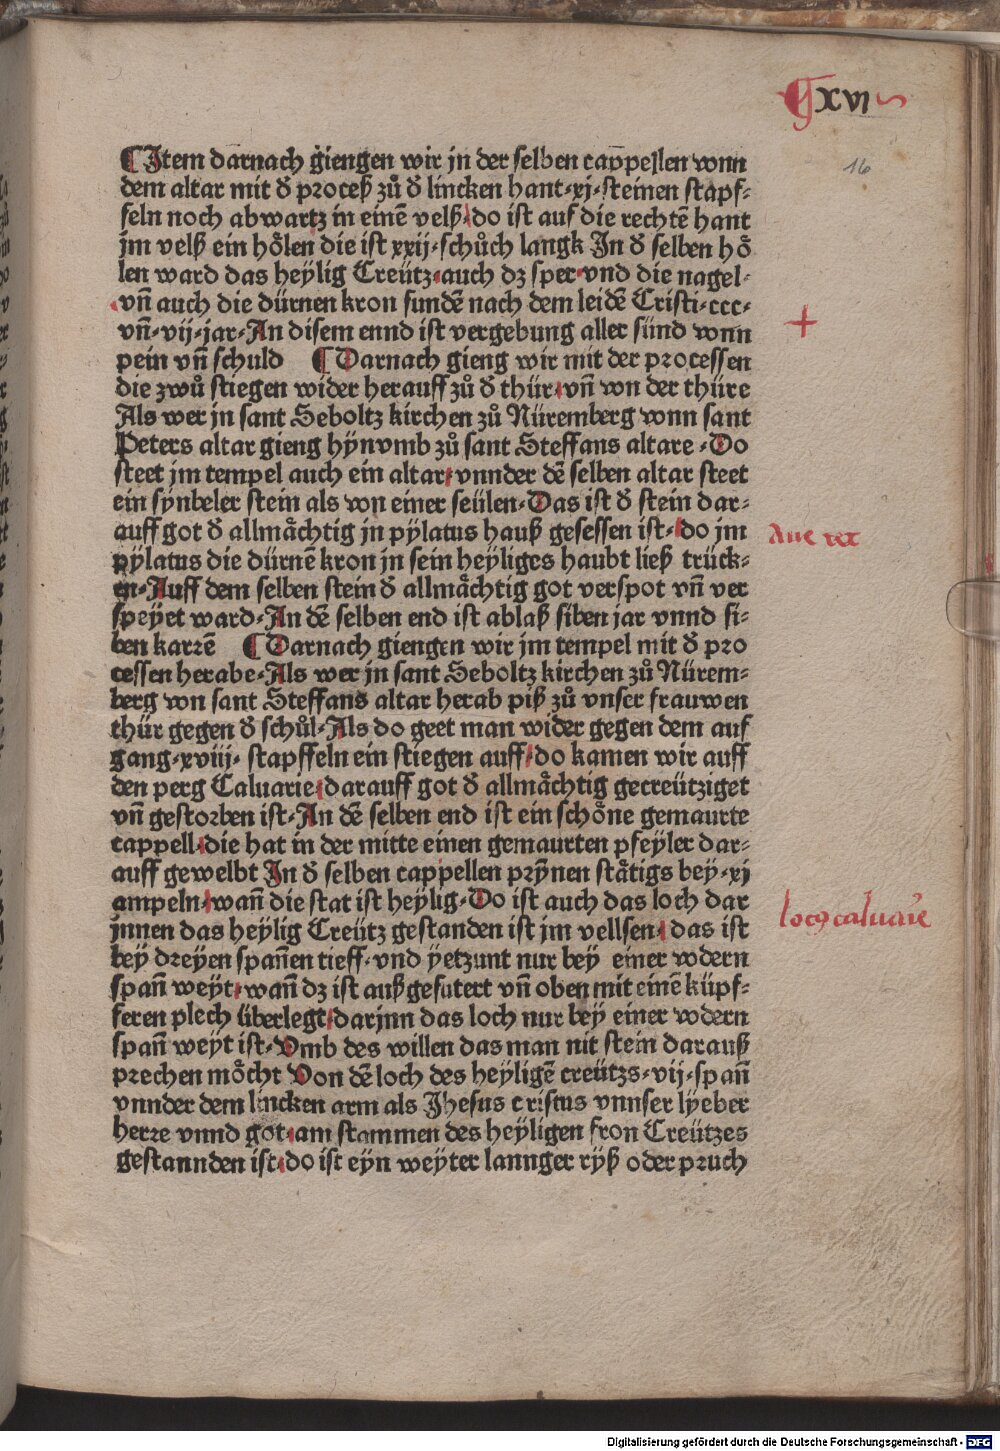 ¶ xvi
16
¶ Item darnach giengen wir jn der selben cappellen vonn
dem altar mit d̕ proceß zuͦ d̕ lincken hant·xj·steinen stapf⸗
feln noch abwartz in einē velß·do ist auf die rechtē hant
jm velß ein hoͤlen die ist xxij·schuͦch langk Jn d̕ selben hoͤ
len ward das heylig Creütz·auch dz sper·vnd die nagel·
vn̄ auch die dürnen kron fundē nach dem leidē Cristi·ccc·
vn̄·vij·jar·An disem ennd ist vergebung aller sünd vonn
pein vn̄ schuld ¶ Darnach gieng wir mit der processen
die zwuͦ stiegen wider herauff zuͦ d̕ thür·vn̄ von der thüre
Als wer jn sant Seboltz kirchen zuͦ Nüremberg vonn sant
Peters altar gieng hÿnvmb zuͦ sant Steffans altare·Do
steet jm tempel auch ein altar·vnnder dē selben altar steet
ein synbeler stein als von einer seülen·Das ist d̕ stein dar⸗
auff got d̕ allmaͤchtig jn pÿlatus hauß gesessen ist·do jm
pÿlatus die dürnē kron jn sein heÿliges haubt ließ trück⸗
en·Auff dem selben stein d̕ allmaͤchtig got verspot vn̄ ver
speyet ward·An dē selben end ist ablaß siben jar vnnd si⸗
ben karrē ¶ Darnach giengen wir jm tempel mit d̕ pro
cessen herabe·Als wer jn sant Seboltz kirchen zuͦ Nürem⸗
berg von sant Steffans altar herab piß zuͦ vnser frauwen
thür gegen d̕ schuͦl·Als do geet man wider gegen dem auf
gang·xviij· stapffeln ein stiegen auff·do kamen wir auff
den perg Caluarie·darauff got d̕ allmaͤchtig gecreütziget
vn̄ gestorben ist·An dē selben end ist ein schoͤne gemaurte
cappell·die hat in der mitte einen gemaurten pfeyler dar⸗
auff gewelbt Jn d̕ selben cappellen prÿnen staͤtigs bey·xj
ampeln·wan̄ die stat ist heylig·Do ist auch das loch dar
jnnen das heÿlig Creütz gestanden ist jm vellsen· das ist
beÿ dreÿen span̄en tieff·vnd ÿetzunt nur beÿ einer vodern
span̄ weÿt·wan̄ dz ist außgefutert vn̄ oben mit einē küpf⸗
feren plech überlegt·darjnn das loch nur beÿ einer vodern
span̄ weÿt ist·Vmb des willen das man nit stein darauß
prechen moͤcht Von dē loch des heÿligē creützs·vij·span̄
vnnder dem lincken arm als Jhesus cristus vnnser lÿeber
herre vnnd got·am stammen des heÿligen fron Creützes
gestannden ist·do ist eÿn weÿter lannger rÿß oder pruch
+
Aue rex
locꝯ caluarie
Digitalisierung gefördert durch die Deutsche Forschungsgemeinschaft - DFG